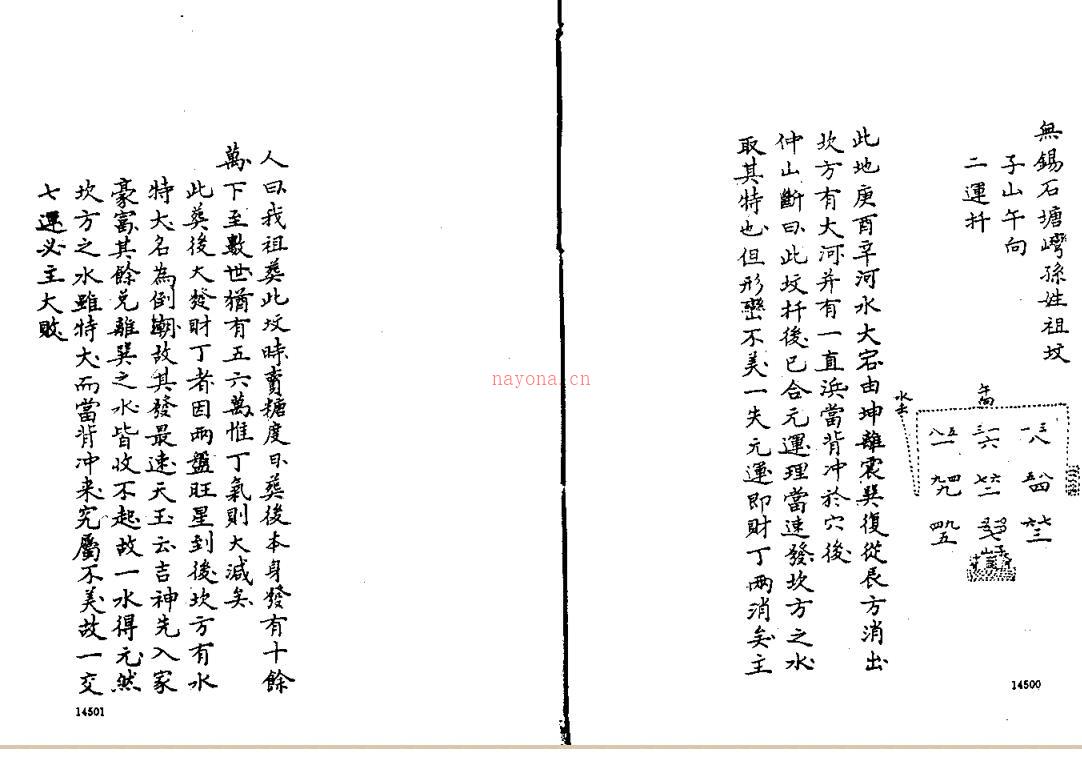 無錫石塘灣孫姓祖坟
子山午向
二運扦
此地庚酉辛河水大宕由坤離震巽復從艮方消出
坎方有大河并有一直浜當背冲於穴後
仲山斷曰此坟扦後已合元運理當速發坎方之水
取其特也但形巒不美一失元運即財丁兩消矣主
午向
水去
人曰我祖葬此坟時賣糖度日葬後本身發有十餘
萬下至數世猶有五六萬惟丁氣則大減矣
此葬後大發財丁者因兩盤旺星到後坎方有水
特大名為倒潮故其發最速天玉云吉神先入家
豪富其餘兌離巽之水皆收不起故一水得元然
坎方之水雖特大而當背冲来究屬不美故一交
七運必主大敗
nayona.cn
14500
14501